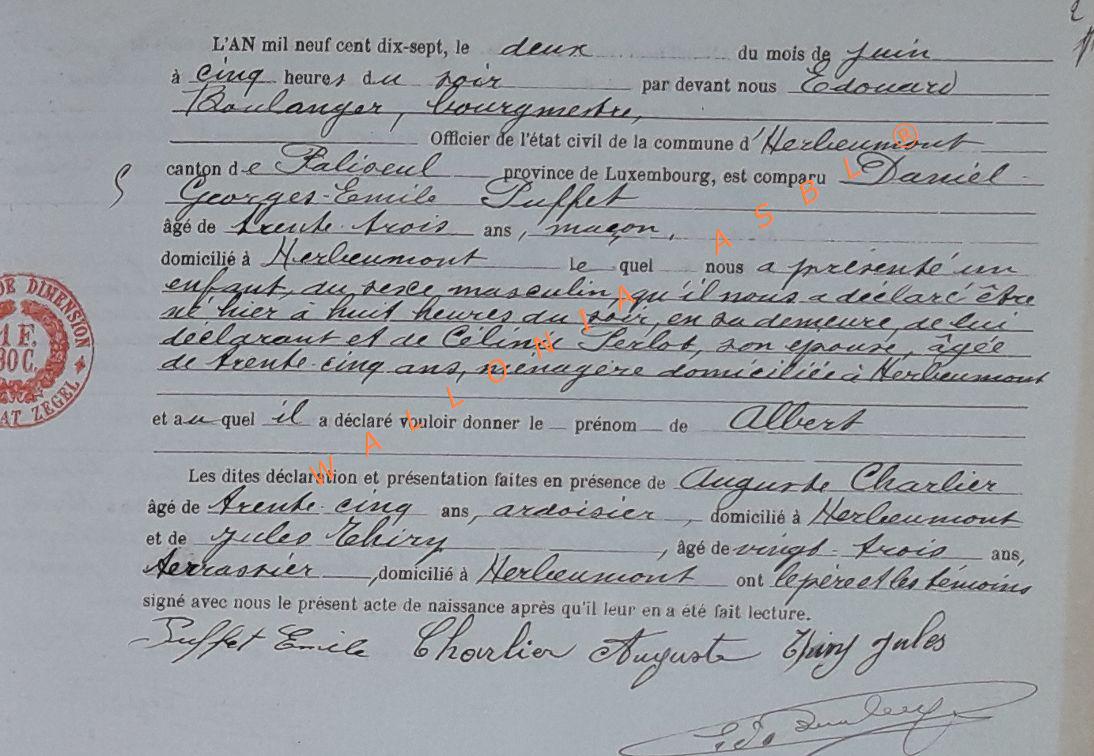 2
L'AN mil neuf cent dix-sept, le deux du mois de juin
à cinq heures du soir par devant nous Edouard
Boulanger, bourgmestre,
Officier de l'état civil de la commune d'Herbeumont
canton de Paliseul province de Luxembourg, est comparu Daniel
Georges-Emile Puffet
âgé de trente-trois ans, maçon,
domicilié à Herbeumont le quel nous a présenté un
enfant du sexe masculin, qu'il nous a déclaré être
né hier à huit heures du soir, en sa demeure, de lui
déclarant et de Célinie Perlot, son épouse, âgée
de trente-cinq ans, ménagère domiciliée à Herbeumont
et au quel il a déclaré vouloir donner le prénom de Albert
Les dites déclaration et présentation faites en présence de Auguste Charlier
âgé de trente-cinq ans, ardoisier, domicilié à Herbeumont
et de Jules Thiry, âgé de vingt-trois ans,
terrassier, domicilié à Herbeumont ont le père et les témoins
signé avec nous le présent acte de naissance après qu'il leur en a été fait lecture.
Puffet Emile Charlier Auguste Thiry Jules
Ed. Boulanger
DE DIMENSION
1 F.
30 C.
ZEGEL
WALLONIA ASBL ®